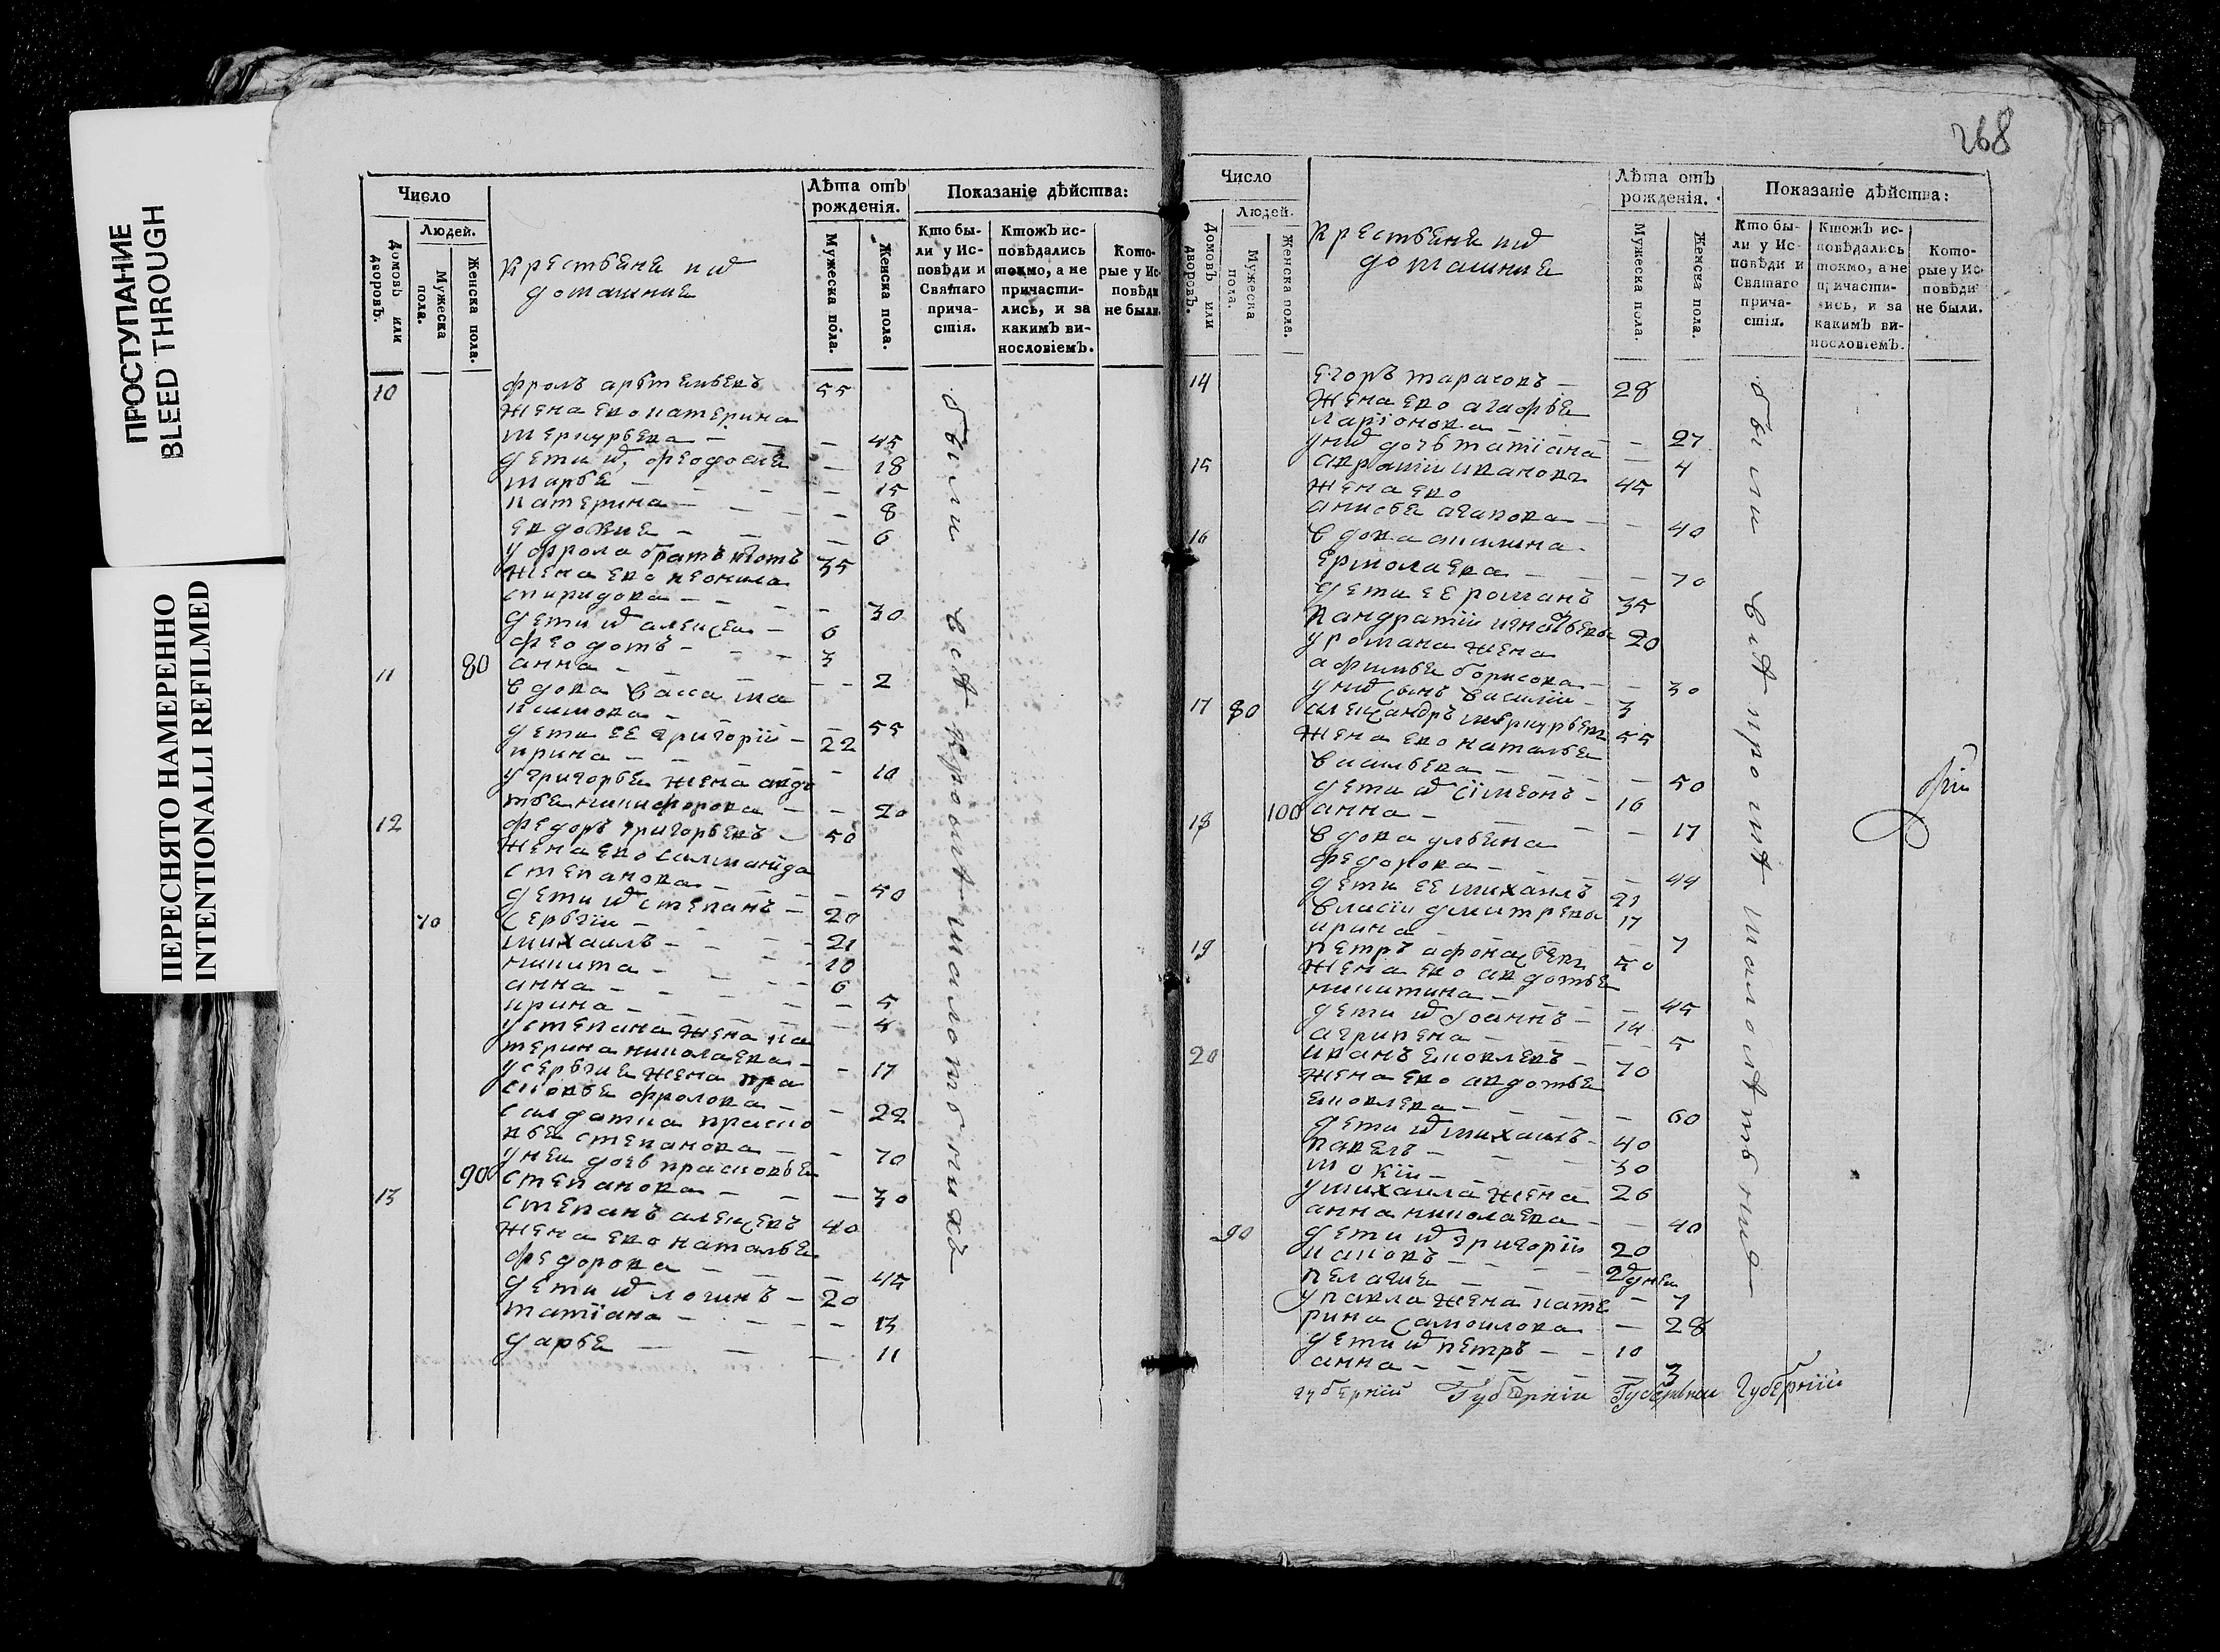 ПРОСТУПАНИЕ
BLEED THROUGH
ПЕРЕСНЯТО НАМЕРЕННО
INTENTIONALLI REFILMED
Число
Людей.
Домовъ или дворовъ.
Мужеска пола.
Женска пола.
крестьяне и ихъ
домашние
Лѣта отъ рожденія.
Мужеска пола.
Женска пола.
Показаніе дѣйства:
Кто бы-
ли у Ис-
повѣди и
Святаго
прича-
стія.
Ктожъ ис-
повѣдались
токмо, а не
причасти-
лись, и за
какимъ ви-
нословіемъ.
Кото-
рые у Ис-
повѣди
не были.
10 фролъ артемьевъ 55
жена ево катерина
меркурьева 45
дети ихъ феодосия 18
марья 15
катерина 8
евдокия 6
у фрола братъ 35
жена ево неонила
спиридова 30
дети ихъ алексеи 6
феодотъ 3
80 анна 2
11 вдова васса
климова 55
дети ее григорїи 22
ирина 10
у григорья жена авдо
тья никифорова 20
12 федоръ григорьевъ 50
жена ево саламанїда
степанова 50
дети ихъ степанъ 20
70 сергїи 21
михаилъ 10
никита 6
анна 5
ирина 4
у степана жена ка
терина николаева 17
у сергия жена пра
сковья фролова 22
салдатка праско
вья степанова 70
у неи дочь прасковья
90 степанова 30
13 степанъ алексевъ 40
жена ево наталья
федорова 45
дети ихъ логинъ 20
татїана 13
дарья 11
были всѣ кромѣ малолѣтныхъ
268
Число
Людей.
Домовъ или дворовъ.
Мужеска пола.
Женска пола.
крестьяне ихъ
домашние
Лѣта отъ рожденія.
Мужеска пола
Женска пола.
Показаніе дѣйства:
Кто бы-
ли у Ис-
повѣди и
Святаго
прича-
стія.
Ктожъ ис-
повѣдались
токмо, а не
причасти-
лись, и за
какимъ ви-
нословіемъ.
Кото-
рые у Ис-
повѣди
не были.
14 егоръ тарасовъ 28
жена ево агафья
ларїонова 27
у нихъ дочь татїана 4
15 ивановъ 45
жена ево
анисья агапова 40
16 вдова акилина
ермолаева 70
дети ее романъ 35
кандратїи игнатьевы 20
у романа жена
афимья борисова 30
у нихъ сынъ василїи 3
17 80 александръ меркурьевъ 55
жена ево наталья
васильева 50
дети ихъ сїмеонъ 16
100 анна 17
18 вдова ульяна
федорова 44
дети ее михаилъ 21
власїи дмитревы 17
ирина 7
19 петръ афонасьевъ 50
жена ево авдотья
никитина 45
дети ихъ іоаннъ 14
агрипена 5
20 иванъ яковлевъ 70
жена ево авдотья
яковлева 60
дети ихъ михаилъ 40
павелъ 30
мокїи 26
у михаила жена
анна николаева 40
90 дети ихъ григорїи 20
иаковъ 2 дней
пелагия 7
у павла жена кате
рина самоилова 28
дети ихъ петръ 10
анна 3
были всѣ кромѣ малолѣтныхъ
губернїи Губернїи Губернїи Губернїи